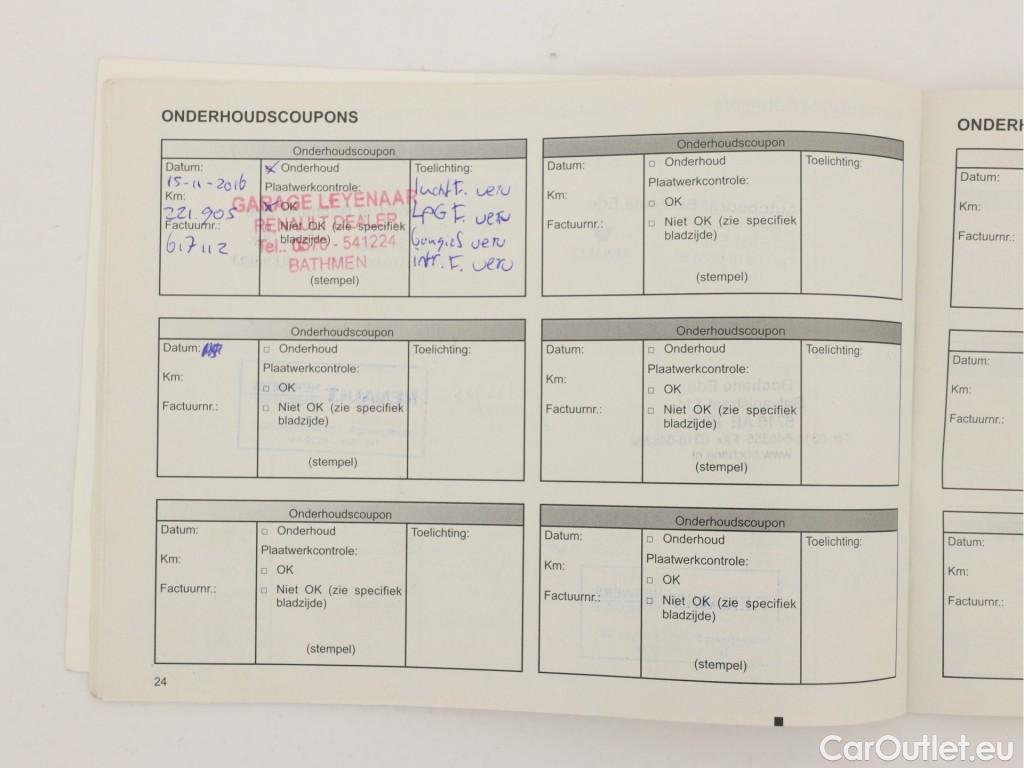 ONDERHOUDSCOUPONS
Onderhoudscoupon
Datum:
15-11-2016
Km:
221.905
Factuurnr.:
617112
x Onderhoud
Plaatwerkcontrole:
x OK
Niet OK (zie specifiek
bladzijde)
(stempel)
GARAGE LEYENAAR
RENAULT DEALER
Tel.: 0570 - 541224
BATHMEN
Toelichting:
lucht F. verv
LPG F. verv
bougies verv
intr. F. verv
Onderhoudscoupon
Datum:
Km:
Factuurnr.:
□ Onderhoud
Plaatwerkcontrole:
□ OK
□ Niet OK (zie specifiek
bladzijde)
(stempel)
Toelichting:
Onderhoudscoupon
Datum:
Km:
Factuurnr.:
□ Onderhoud
Plaatwerkcontrole:
□ OK
□ Niet OK (zie specifiek
bladzijde)
(stempel)
Toelichting:
Onderhoudscoupon
Datum:
Km:
Factuurnr.:
□ Onderhoud
Plaatwerkcontrole:
□ OK
□ Niet OK (zie specifiek
bladzijde)
(stempel)
Toelichting:
Onderhoudscoupon
Datum:
Km:
Factuurnr.:
□ Onderhoud
Plaatwerkcontrole:
□ OK
□ Niet OK (zie specifiek
bladzijde)
(stempel)
Toelichting:
Onderhoudscoupon
Datum:
Km:
Factuurnr.:
□ Onderhoud
Plaatwerkcontrole:
□ OK
□ Niet OK (zie specifiek
bladzijde)
(stempel)
Toelichting:
24
ONDERH
Datum:
Km:
Factuurnr.:
Datum:
Km:
Factuurnr.:
Datum:
Km:
Factuurnr.:
CarOutlet.eu